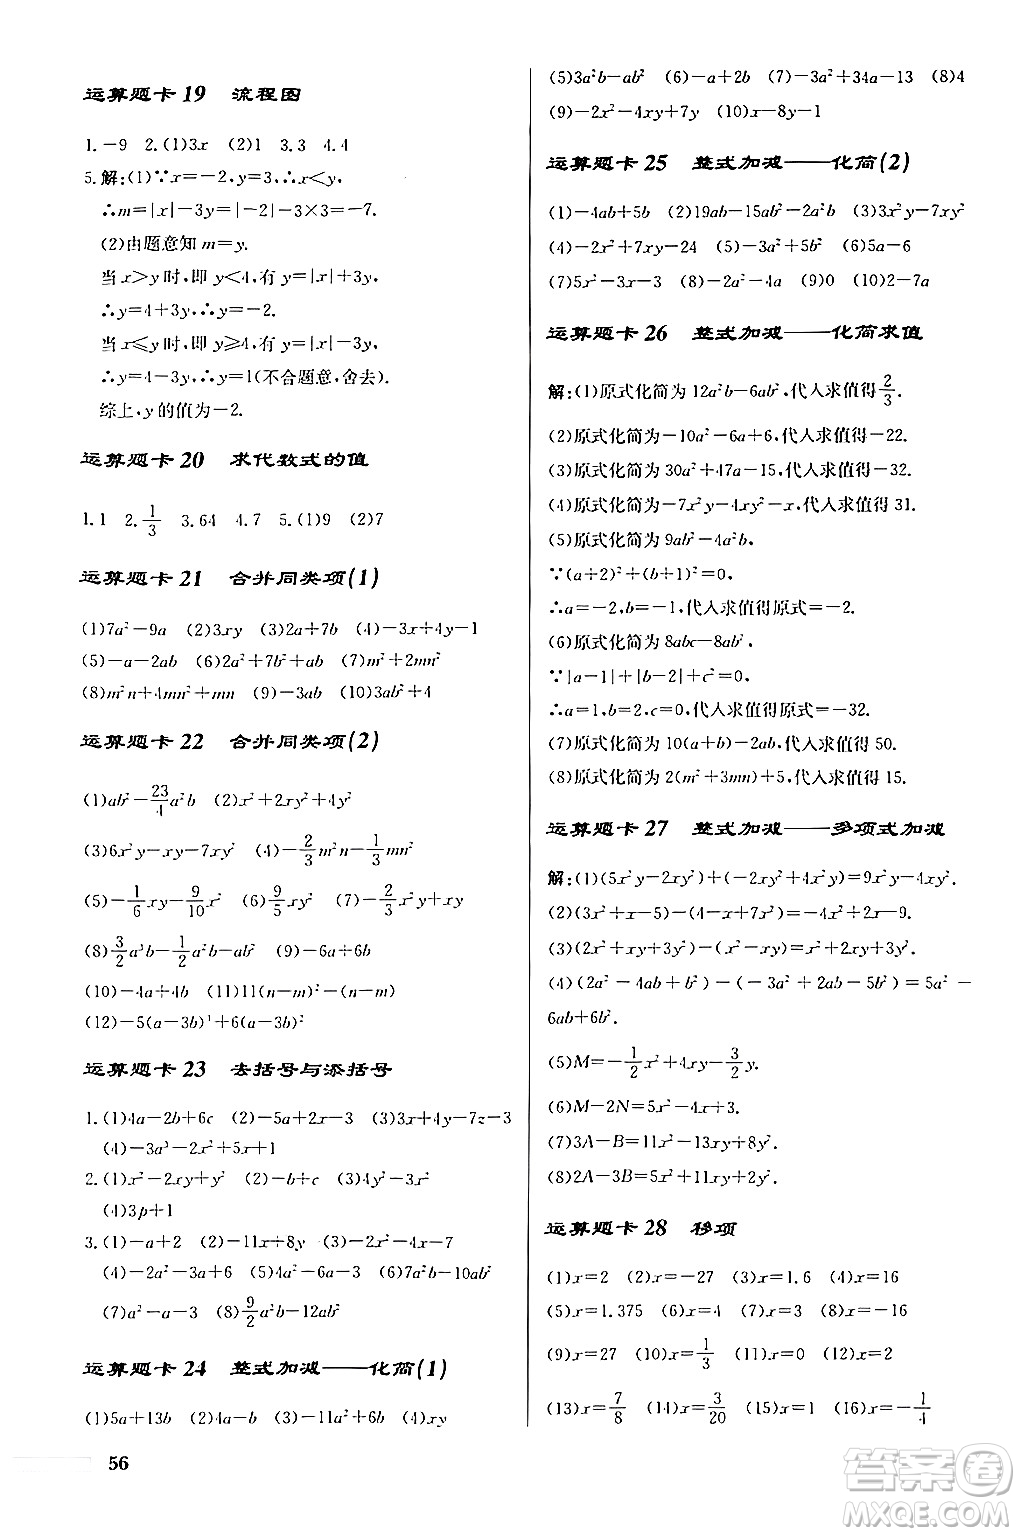 运算题卡 19　流程图
1.－9　2.(1)3x　(2)1　3.3　4.4
5.解:(1)∵x＝－2,y＝3,∴x＜y,
∴m＝|x|－3y＝|－2|－3×3＝－7.
(2)由题意知 m＝y.
当 x＞y 时,即 y＜4,有 y＝|x|＋3y,
∴y＝4＋3y,∴y＝－2.
当 x≤y 时,即 y≥4,有 y＝|x|－3y,
∴y＝4－3y,∴y＝1(不合题意,舍去).
综上,y 的值为－2.
运算题卡 20　求代数式的值
1.1　2.1/3　3.64　4.7　5.(1)9　(2)7
运算题卡 21　合并同类项(1)
(1)7a²－9a　(2)3xy　(3)2a＋7b　(4)－3x＋4y－1
(5)－a－2ab　(6)2a²＋7b²＋ab　(7)m²＋2mn²
(8)m²n＋4mn²＋mn　(9)－3ab　(10)3ab²＋4
运算题卡 22　合并同类项(2)
(1)ab²－23/4 a²b　(2)x²＋2xy²＋y²
(3)6x²y－xy－7xy²　(4)－2/3 m²n－1/3 mn²
(5)－1/6 xy－9/10 x²　(6)9/5 xy²　(7)－2/3 x²y＋xy
(8)3/2 a³b－1/2 a²b－ab²　(9)－10a＋6b
(10)－4a＋4b　(11)11(n－m)²＋(n－m)
(12)－5(a－3b)⁴＋6(a－3b)²
运算题卡 23　去括号与添括号
1.(1)4a－2b＋6c　(2)－5a＋2x－3　(3)3x＋4y－7z－3
(4)－3a³－2x²＋5x＋1
2.(1)x²－2xy＋y²　(2)－b＋c　(3)3x－3x²
(4)3p＋1
3.(1)－a＋2　(2)－11x＋8y　(3)x²－4x－7
(4)－2a²－3a　(5)4a²－3a　(6)7a²b－10ab²
(7)a²－a－3　(8)9/2 a²b－12ab²
运算题卡 24　整式加减——化简(1)
(1)5a＋13b　(2)－2a－2　(3)－11a²＋b²　(4)xy
56
(5)3a²b－ab²　(6)－a＋2b　(7)－3a²＋4a－13　(8)4
(9)－2x²－4xy＋7y　(10)x－8y－1
运算题卡 25　整式加减——化简(2)
(1)－4ab＋5b　(2)19ab－15ab²－2a²b　(3)3x²y－7xy²
(4)－2x²＋7xy－24　(5)－3a²＋5b²　(6)5a－6
(7)5x²－3x－3　(8)2a²－4a　(9)0　(10)2－7a
运算题卡 26　整式加减——化简求值
解:(1)原式化简为 12a²b－6ab²,代入求值得2/3.
(2)原式化简为－10a²－6a＋6,代入求值得－22.
(3)原式化简为 30a²＋47a－15,代入求值得－32.
(4)原式化简为－7x²y－4xy²－x,代入求值得 31.
(5)原式化简为 9ab²－4a²b.
∵(a＋2)²＋(b＋1)²＝0,
∴a＝－2,b＝－1,代入求值得原式＝－2.
(6)原式化简为 8abc－8ab².
∵|a－1|＋|b－2|＋c²＝0,
∴a＝1,b＝2,c＝0,代入求值得原式＝－32.
(7)原式化简为 10(a＋b)－2ab,代入求值得 50.
(8)原式化简为 2(m²＋3mn)＋5,代入求值得 15.
运算题卡 27　整式加减——多项式加减
解:(1)(5x²y－2xy²)＋(－2xy²＋4x²y)＝9x²y－4xy².
(2)(3x²＋x－5)－(4－x＋7x²)＝－4x²＋2x－9.
(3)(2x²－xy＋3y²)－(x²－xy＋y²)＝x²＋2y².
(4)(2a²－4ab＋b²)－(－3a²＋2ab－5b²)＝5a²－
6ab＋6b².
(5)M＝－1/2 x²＋4xy－3/2 y².
(6)M－2N＝5x²－4x＋3.
(7)3A－B＝11x²－13xy＋8y².
(8)2A－3B＝5x²－11xy＋2y².
运算题卡 28　移项
(1)x＝2　(2)x＝－27　(3)x＝1.6　(4)x＝16
(5)x＝1.375　(6)x＝4　(7)x＝3　(8)x＝－16
(9)x＝27　(10)x＝1/3　(11)x＝0　(12)x＝2
(13)x＝7/8　(14)x＝3/20　(15)x＝1　(16)x＝－1/4
答案圈
MXQE.COM